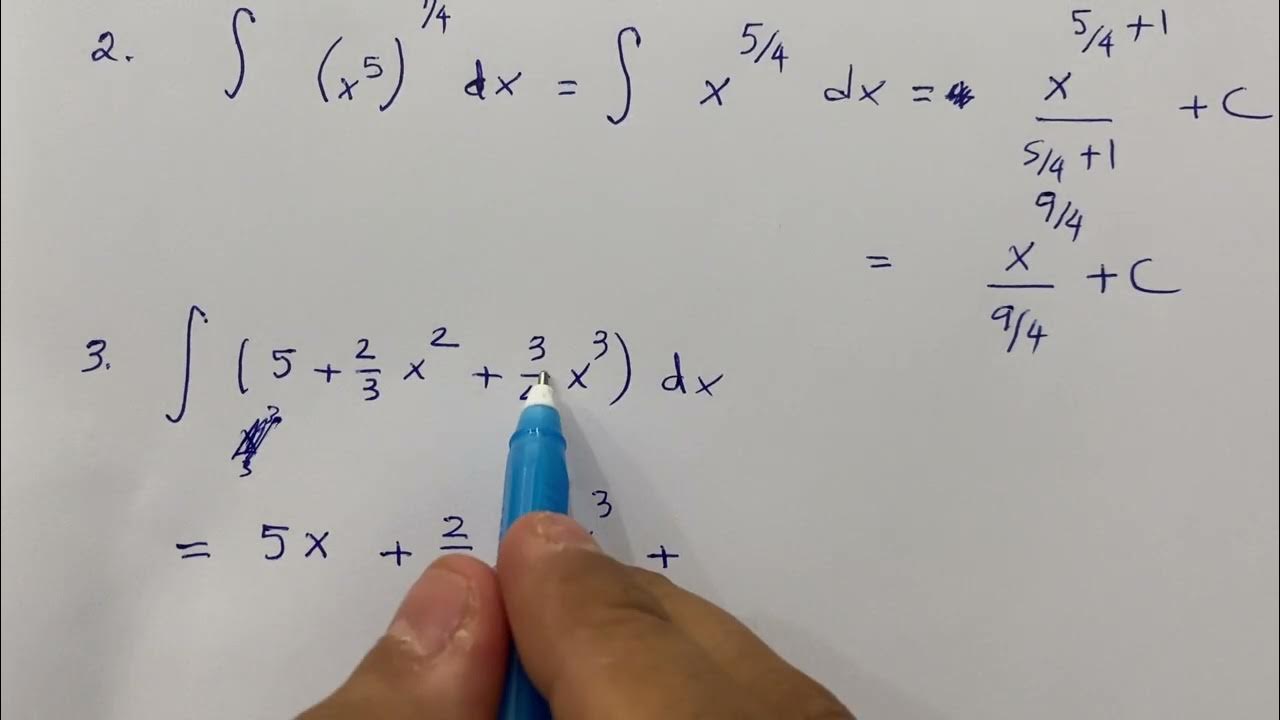 2. ∫ (x⁵)^1/4 dx = ∫ x^5/4 dx = x^5/4+1 / 5/4+1 + C
= x^9/4 / 9/4 + C
3. ∫ (5 + 2/3 x² + 3/ x³) dx
= 5x + 2/ ³ +